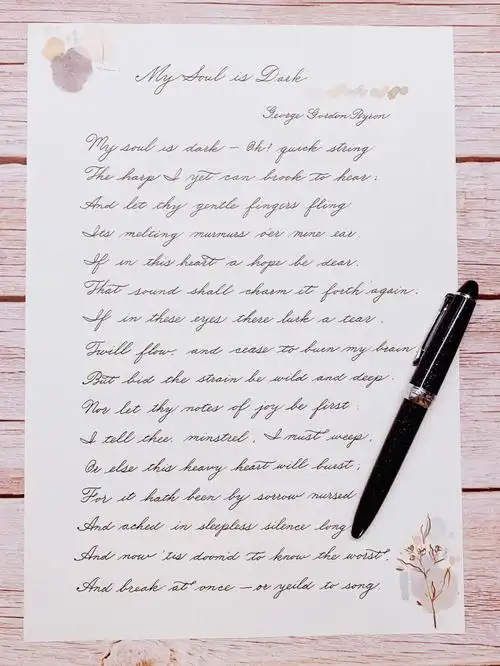 My Soul is Dark
George Gordon Byron
My soul is dark — Oh! quick string
The harp I yet can brook to hear;
And let thy gentle fingers fling
Its melting murmurs o'er mine ear.
If in this heart a hope be dear,
That sound shall charm it forth again;
If in these eyes there lurk a tear,
Twill flow, and cease to burn my brain
But bid the strain be wild and deep,
Nor let thy notes of joy be first
I tell thee, minstrel, I must weep,
Or else this heavy heart will burst;
For it hath been by sorrow nursed
And ached in sleepless silence long
And now 'tis doom'd to know the worst,
And break at once — or yeild to song.